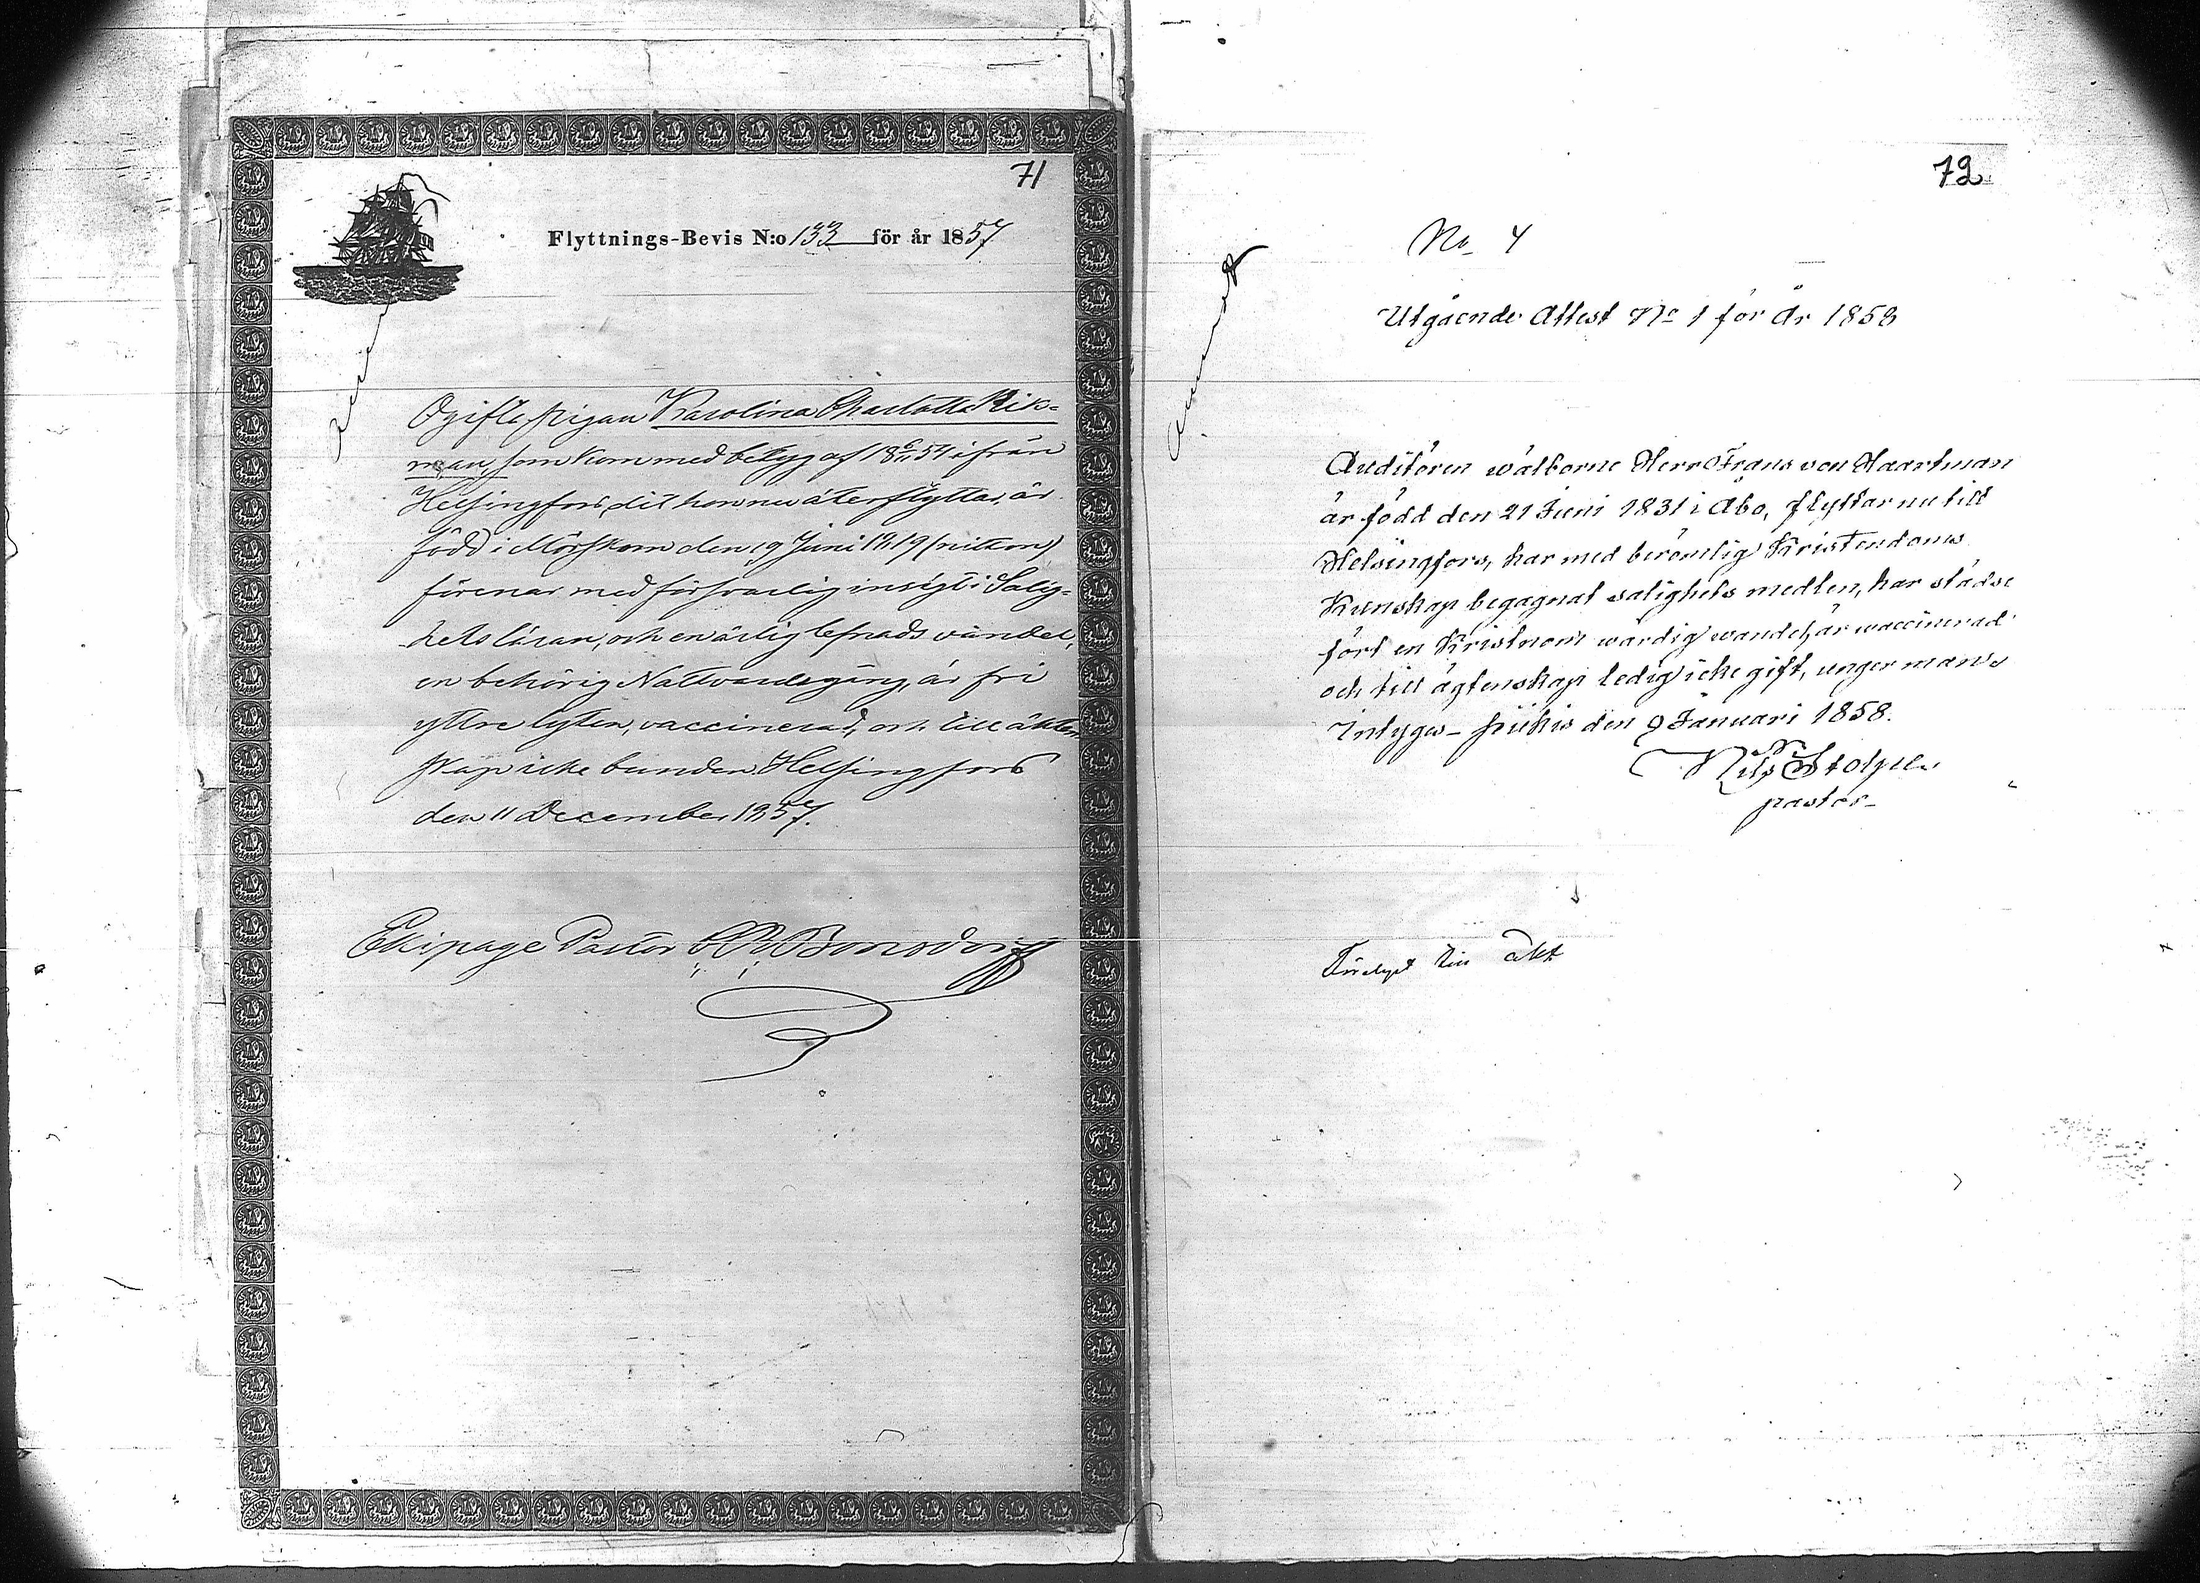 71
Flyttnings-Bevis N:o 133 för år 1857
Ogifte pigan Karolina Charlotta Rik-
man, som kom med betyg af 18 6/11 54 ifrån
Helsingfors, dit hon nu återflyttar, är
född i Mörskom den 19 Juni 1819 (nitton)
förenar med försvarlig insigt i Salig-
hets läran, och en ärlig lefnads vandel,
en behörig Nattvardsgång, är fri
yttre lyten, vaccinerad, och till äkten-
skap icke bunden. Helsingfors
den 11 December 1857.
Ekipage Pastor C. R. Bonsdorff
72
No 4
Utgående Attest No 1 för År 1858
Auditören wälborne Herr Frans von Haartman
är född den 21 Juni 1831 i Åbo, flyttar nu till
Helsingfors, har med berömlig Kristendoms
Kunskap begagnat salighets medlen, har städse
fört en Kristnom wärdig wandel, är waccinerad
och till ägtenskap ledig icke gift, unger mans
Intygas - Pikis den 9 Januari 1858.
Nils Stolpe
pastor
till